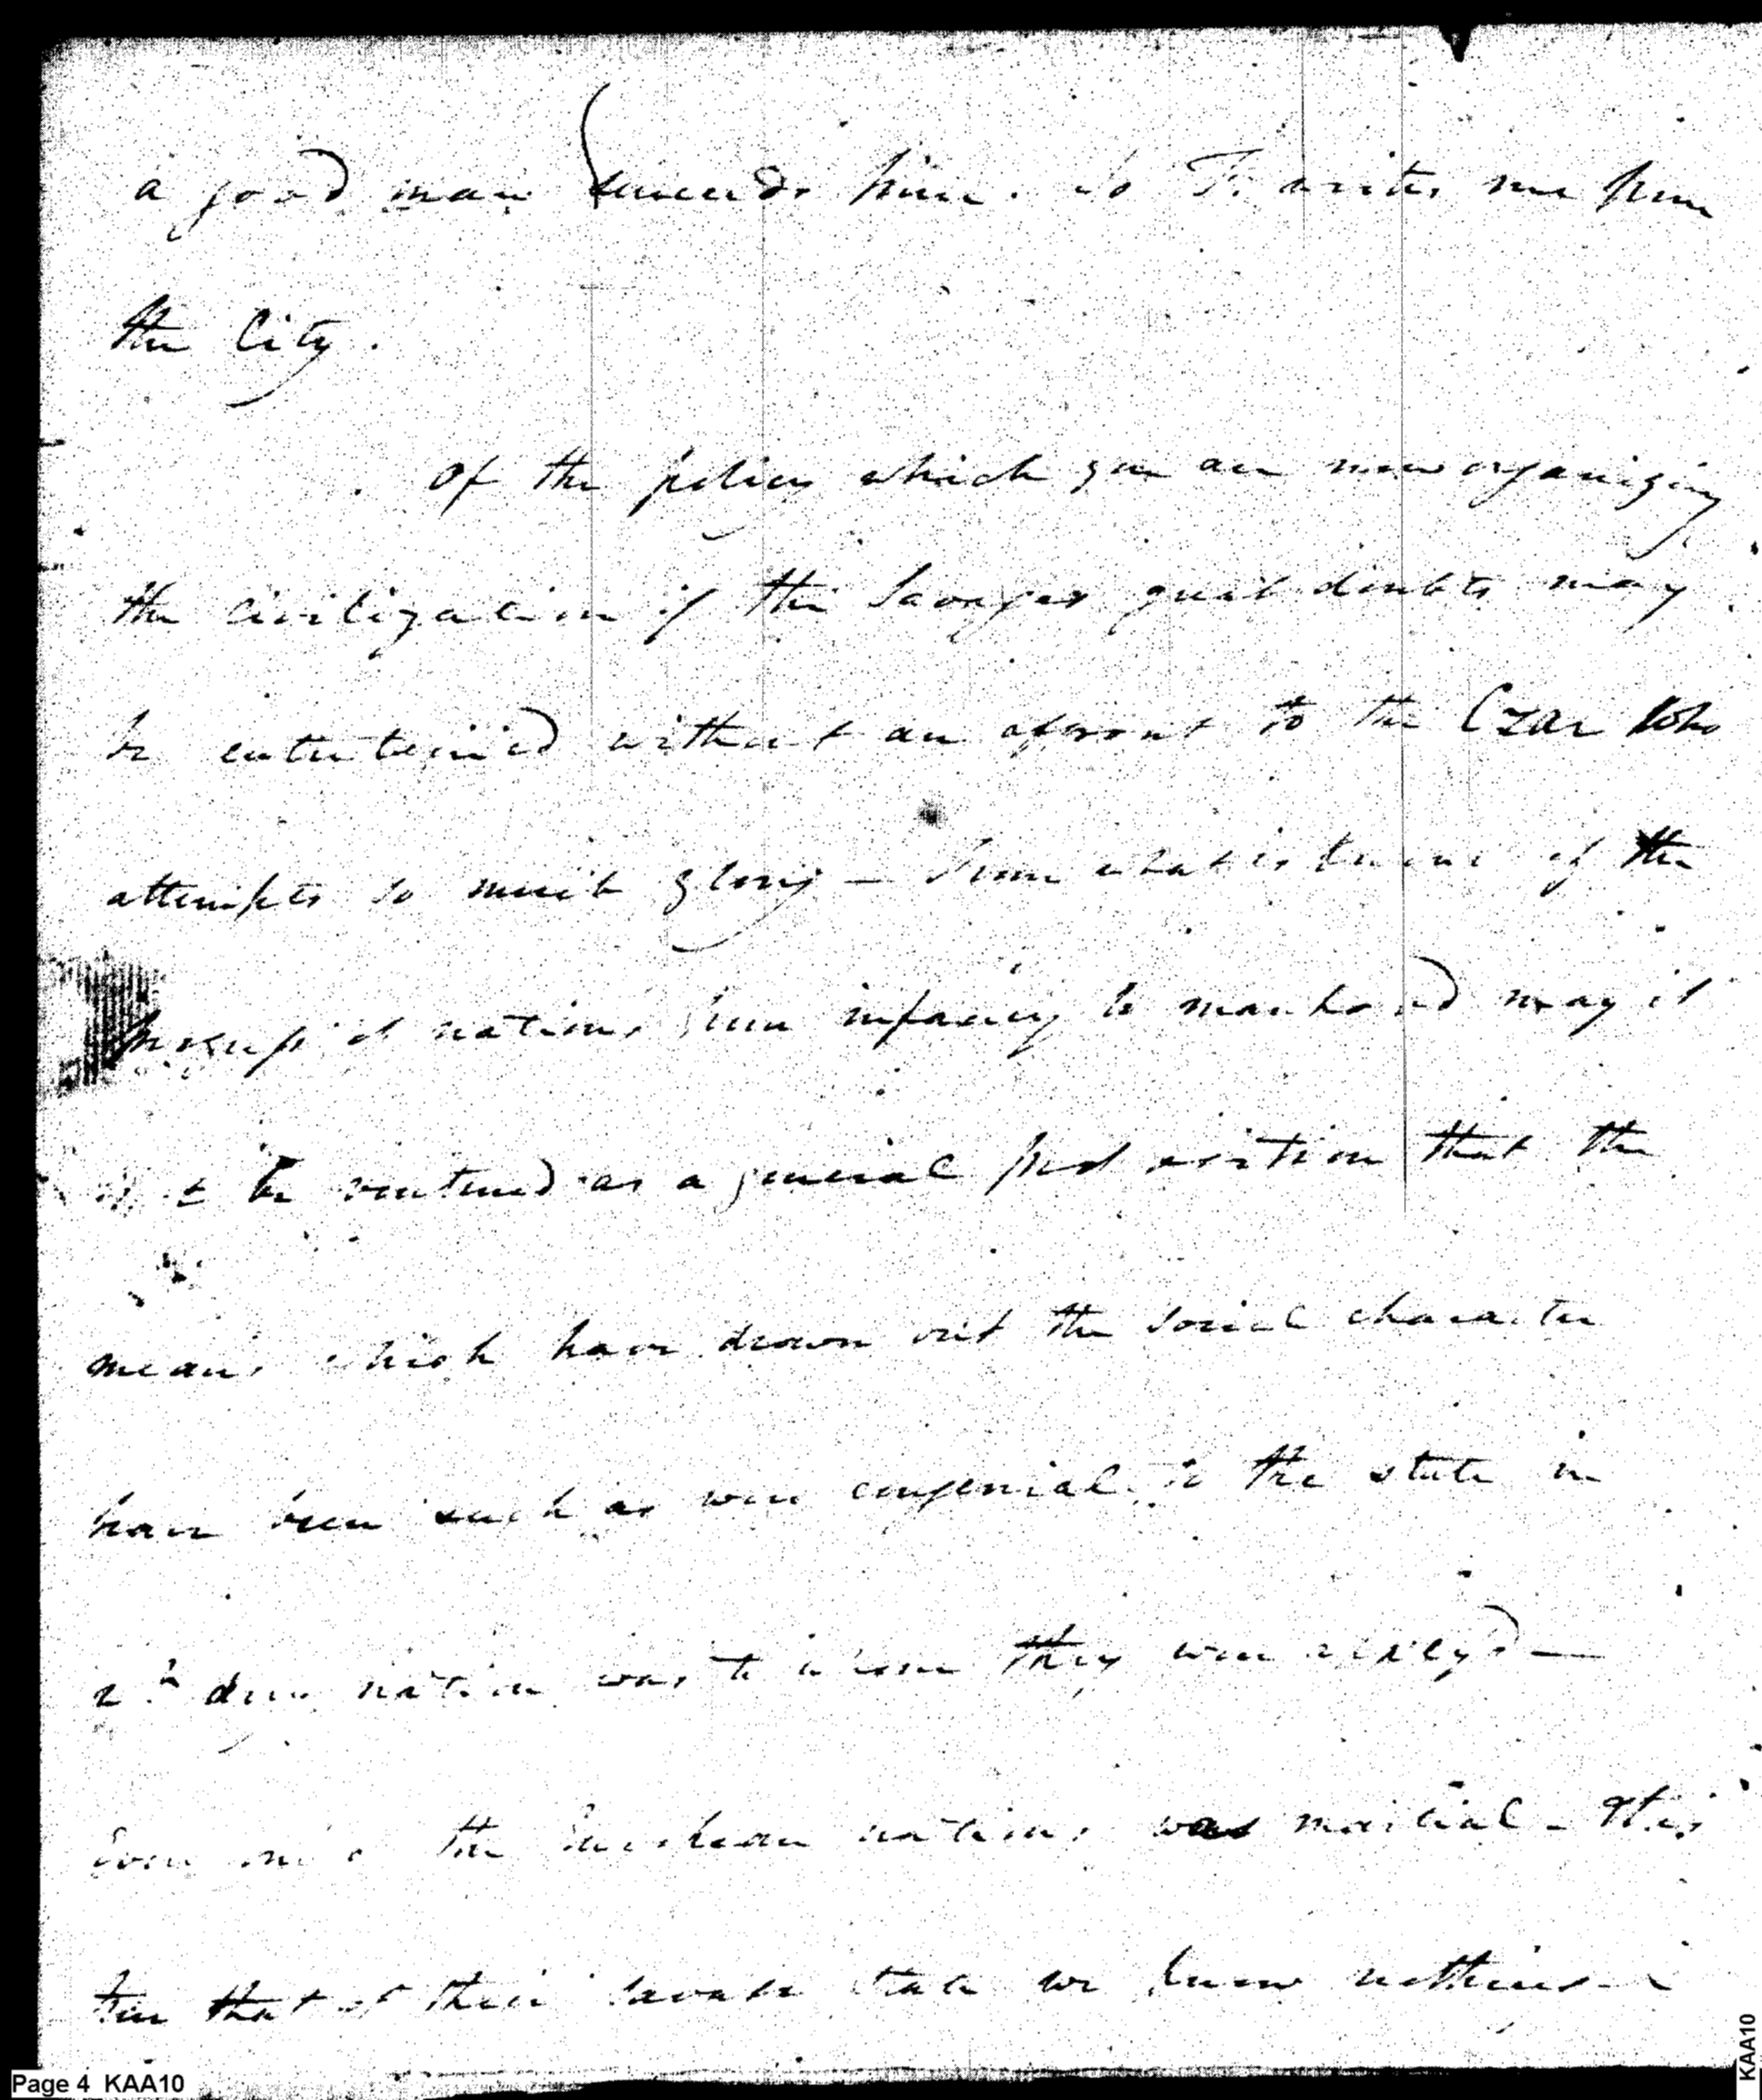 a good man succeeds him. So T. writes me from
the City.
Of the policy which you are now organizing
the civilization of the Savages great doubts may
be entertained without an affront to the Czar who
attempts so much glory — From what is known of the
progress of nations from infancy to manhood may it
not be ventured as a general proposition that the
means which have drawn out the social character
have been such as were congenial to the state in
nation was to whom they were applyd —
the European nations was martial — This
for that of their savage state we know nothing
Page 4 KAA10
KAA10